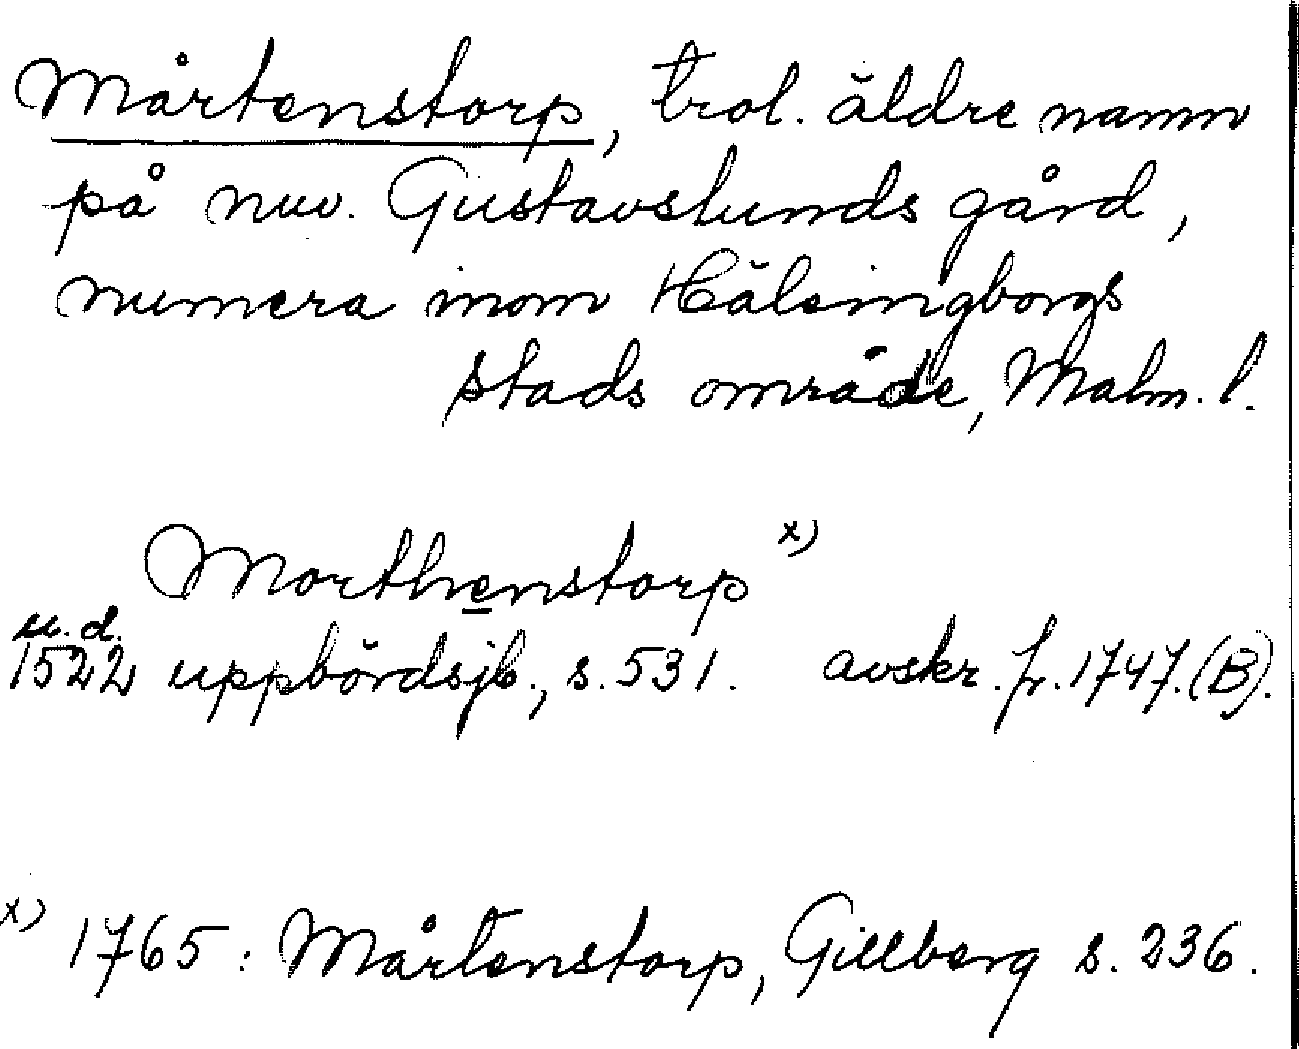 Mårtenstorp, trol. äldre namn
på nuv. Gustavslunds gård,
numera inom Hälsingborgs
stads område, Malm. l.
Morthenstorp x)
u. d.
1522 uppbördsjb., s. 531. avskr. fr. 1747. (B).
x) 1765: Mårtenstorp, Gillberg s. 236.